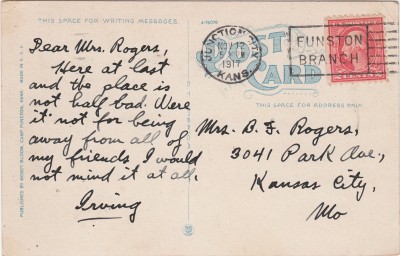 THIS SPACE FOR WRITING MESSAGES.
Dear Mrs. Rogers,
Here at last
and the place is
not half bad. Were
it not for being
away from all of
my friends I would
not mind it at all.
Irving
POST
CARD
JUNCTION CITY
1917
KANS.
FUNSTON
BRANCH
THIS SPACE FOR ADDRESS ONLY
Mrs. B. F. Rogers,
3041 Park Ave,
Kansas City,
Mo